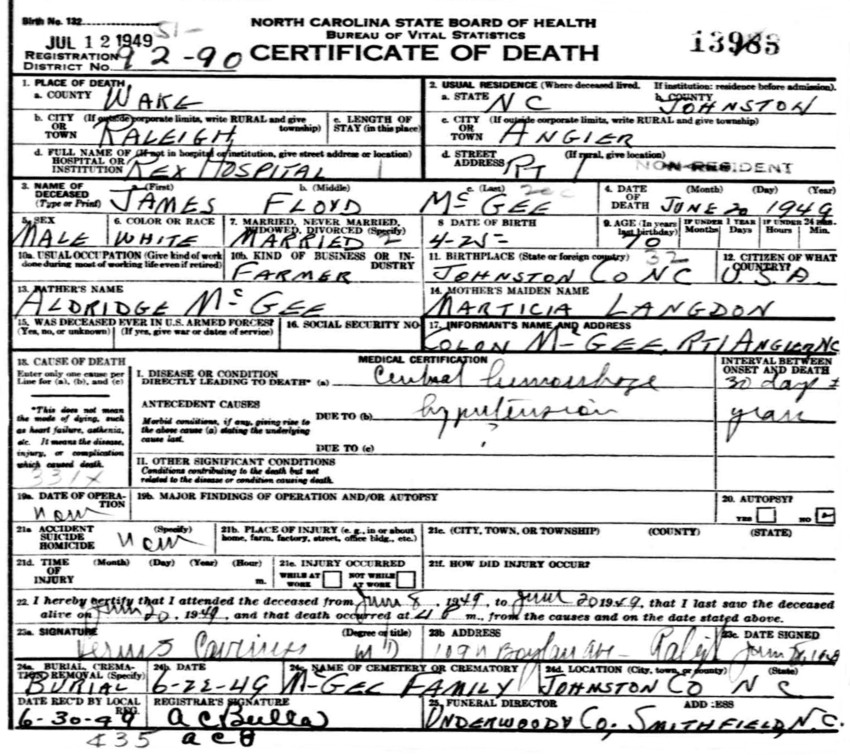 Birth No. 132
51-
NORTH CAROLINA STATE BOARD OF HEALTH
BUREAU OF VITAL STATISTICS
JUL 12 1949
REGISTRATION DISTRICT No. 92-90
CERTIFICATE OF DEATH
13985
1. PLACE OF DEATH
a. COUNTY WAKE
b. CITY (If outside corporate limits, write RURAL and give township) OR TOWN RALEIGH
c. LENGTH OF STAY (in this place)
d. FULL NAME OF (If not in hospital or institution, give street address or location) HOSPITAL OR INSTITUTION REX HOSPITAL
2. USUAL RESIDENCE (Where deceased lived. If institution: residence before admission).
a. STATE NC b. COUNTY JOHNSTON
c. CITY (If outside corporate limits, write RURAL and give township) OR TOWN ANGIER
d. STREET ADDRESS (If rural, give location) RT 1 NON-RESIDENT
3. NAME OF DECEASED (Type or Print)
a. (First) JAMES b. (Middle) FLOYD c. (Last) McGEE
4. DATE OF DEATH (Month) (Day) (Year) JUNE 20 1949
5. SEX MALE
6. COLOR OR RACE WHITE
7. MARRIED, NEVER MARRIED, WIDOWED, DIVORCED (Specify) MARRIED 2
8 DATE OF BIRTH 4-25-
9. AGE (In years last birthday) 70
IF UNDER 1 YEAR Months Days
IF UNDER 24 HRS. Hours Min.
10a. USUAL OCCUPATION (Give kind of work done during most of working life even if retired)
10b. KIND OF BUSINESS OR INDUSTRY FARMER
11. BIRTHPLACE (State or foreign country) 32 JOHNSTON CO NC
12. CITIZEN OF WHAT COUNTRY? U.S.A.
13. FATHER'S NAME ALDRIDGE McGEE
14. MOTHER'S MAIDEN NAME MARTICIA LANGDON
15. WAS DECEASED EVER IN U.S. ARMED FORCES? (Yes, no, or unknown) (If yes, give war or dates of service)
16. SOCIAL SECURITY NO
17. INFORMANT'S NAME AND ADDRESS COLON McGEE, RT1 ANGIER, NC
18. CAUSE OF DEATH
Enter only one cause per Line for (a), (b), and (c)
*This does not mean the mode of dying, such as heart failure, asthenia, etc. It means the disease, injury, or complication which caused death.
331X
MEDICAL CERTIFICATION
INTERVAL BETWEEN ONSET AND DEATH
I. DISEASE OR CONDITION DIRECTLY LEADING TO DEATH* (a) hemorrhage 30 days
ANTECEDENT CAUSES
Morbid conditions, if any, giving rise to the above cause (a) stating the underlying cause last.
DUE TO (b) hypertension years
DUE TO (c) ?
II. OTHER SIGNIFICANT CONDITIONS
Conditions contributing to the death but not related to the disease or condition causing death.
19a. DATE OF OPERATION
19b. MAJOR FINDINGS OF OPERATION AND/OR AUTOPSY
20. AUTOPSY?
YES NO
21a ACCIDENT SUICIDE HOMICIDE (Specify)
21b. PLACE OF INJURY (e. g., in or about home, farm, factory, street, office bldg., etc.)
21c. (CITY, TOWN, OR TOWNSHIP) (COUNTY) (STATE)
21d. TIME OF INJURY (Month) (Day) (Year) (Hour) m.
21e. INJURY OCCURRED
WHILE AT WORK NOT WHILE AT WORK
21f. HOW DID INJURY OCCUR?
22. I hereby certify that I attended the deceased from June 8, 1949, to June 20 1949, that I last saw the deceased
alive on June 20, 1949, and that death occurred at m., from the causes and on the date stated above.
23a. SIGNATURE (Degree or title) MD
23b. ADDRESS Boylan Ave- Raleigh
23c. DATE SIGNED
24a. BURIAL, CREMATION REMOVAL (Specify) BURIAL
24b. DATE 6-22-49
24c. NAME OF CEMETERY OR CREMATORY McGEE FAMILY
24d. LOCATION (City, town, or county) (State) JOHNSTON CO NC
DATE REC'D BY LOCAL REG. 6-30-49
REGISTRAR'S SIGNATURE A C Bulla
25. FUNERAL DIRECTOR ADDRESS UNDERWOOD & CO, SMITHFIELD, N.C.
435 acB